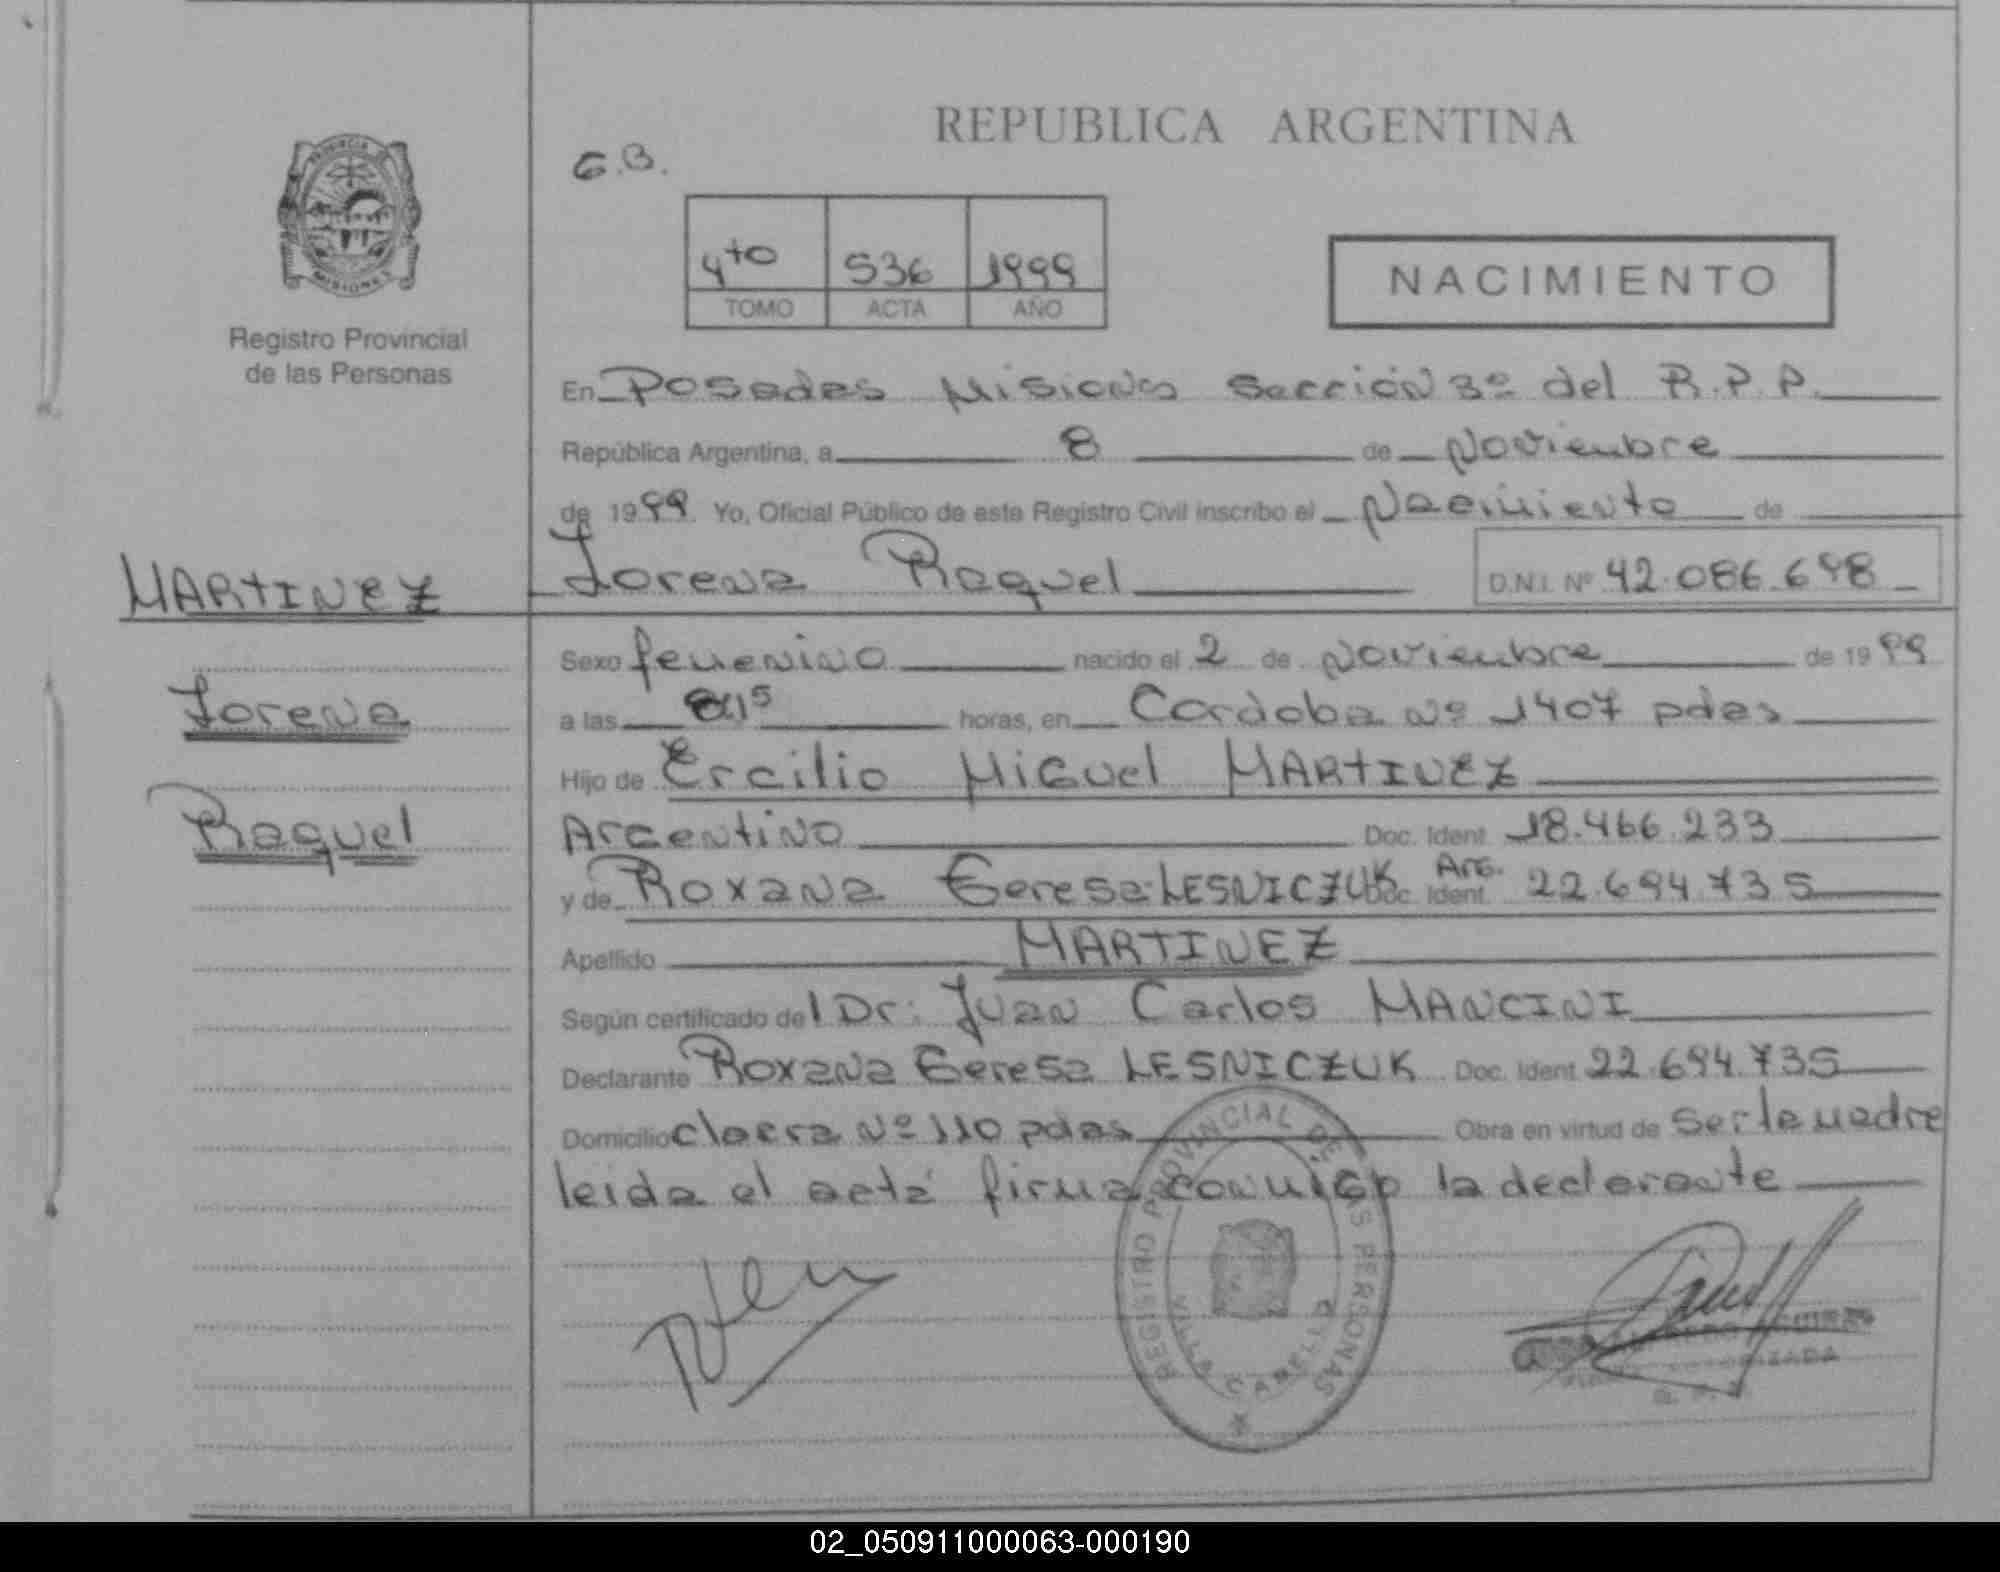 REPUBLICA ARGENTINA
G.B.
4to 536 1999
TOMO ACTA AÑO
NACIMIENTO
PROVINCIA DE
MISIONES
Registro Provincial
de las Personas
En Posadas Misiones Sección 3º del R.P.P.
República Argentina, a 8 de Noviembre
de 1999. Yo, Oficial Público de este Registro Civil inscribo el Nacimiento de
MARTINEZ
Lorena Raquel D.N.I. Nº 42.086.698
Sexo femenino nacido el 2 de Noviembre de 1999
Lorena
a las 8:15 horas, en Cordoba Nº 1407 pdas
Hijo de Ercilio Miguel MARTINEZ
Raquel
Argentino Doc. Ident. 18.466.233
y de Roxana Teresa LESNICZUK Arg. Doc. Ident. 22.694.735
Apellido MARTINEZ
Según certificado del Dr: Juan Carlos MANCINI
Declarante Roxana Teresa LESNICZUK Doc. Ident. 22.694.735
Domicilio Nº 110 pdas Obra en virtud de ser la madre
leida el acta firma conmigo la declarante
REGISTRO PROVINCIAL DE LAS PERSONAS
VILLA CABELLO
02_050911000063-000190